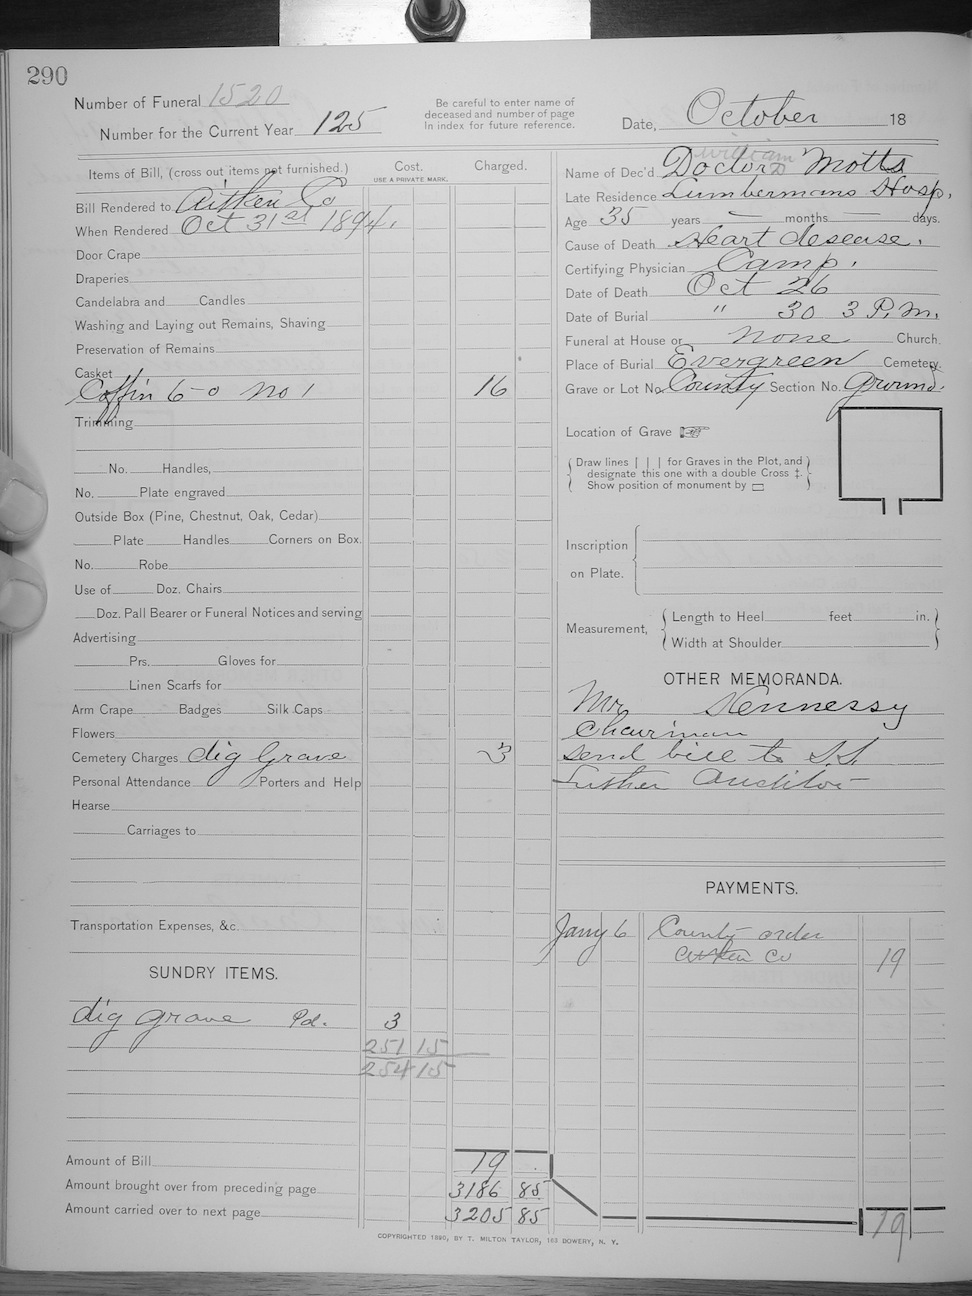 290
Number of Funeral 1520
Number for the Current Year 125
Be careful to enter name of
deceased and number of page
In index for future reference.
Date, October 18
Items of Bill, (cross out items not furnished.)
Cost.
USE A PRIVATE MARK.
Charged.
Bill Rendered to Aitken Co
When Rendered Oct 31st 1894.
Door Crape
Draperies
Candelabra and Candles
Washing and Laying out Remains, Shaving
Preservation of Remains
Casket
Coffin 6-0 No 1 16
Trimming
No. Handles,
No. Plate engraved
Outside Box (Pine, Chestnut, Oak, Cedar)
Plate Handles Corners on Box.
No. Robe
Use of Doz. Chairs
Doz. Pall Bearer or Funeral Notices and serving
Advertising
Prs. Gloves for
Linen Scarfs for
Arm Crape Badges Silk Caps
Flowers
Cemetery Charges dig Grave 3
Personal Attendance Porters and Help
Hearse
Carriages to
Transportation Expenses, &c.
SUNDRY ITEMS.
dig grave Pd. 3
251 15
254 15
Amount of Bill 19
Amount brought over from preceding page 3186 85
Amount carried over to next page 3205 85
william
Name of Dec'd Doctor Motts
Late Residence Lumbermans Hosp.
Age 35 years — months — days.
Cause of Death Heart desease.
Certifying Physician Camp.
Date of Death Oct 26
Date of Burial " 30 3 P.M.
Funeral at House or none Church.
Place of Burial Evergreen Cemetery.
Grave or Lot No. County Section No. Ground.
Location of Grave
Draw lines | | | for Graves in the Plot, and
designate this one with a double Cross ‡.
Show position of monument by
Inscription
on Plate.
Measurement,
Length to Heel feet in.
Width at Shoulder
OTHER MEMORANDA.
Mr Hennessy
Chairman
send bill to
Luther Auditor
PAYMENTS.
Jany 6 County order
Aitken Co 19
19
COPYRIGHTED 1890, BY T. MILTON TAYLOR, 163 BOWERY, N. Y.